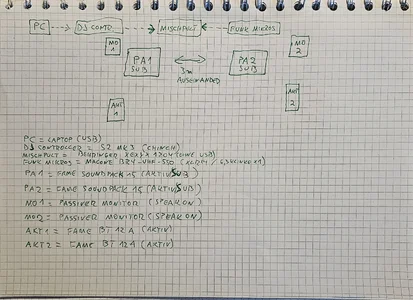 PC DJ CONTR. MISCHPULT FUNK MIKROS
MO 1
MO 2
PA1 SUB
3m AUSEINANDER
PA2 SUB
AKT 1
AKT 2
PC = LAPTOP (USB)
DJ CONTROLLER = S2 MK3 (CHINCH)
MISCHPULT = XENYX 1204 (OHNE USB)
FUNK MIKROS =
PA1 = FAME SOUNDPACK 15 (AKTIV SUB)
PA2 = FAME SOUNDPACK 15 (AKTIV SUB)
MO1 = PASSIVER MONITOR (SPEAKON)
MO2 = PASSIVER MONITOR (SPEAKON)
AKT1 = FAME BT 12A (AKTIV)
AKT2 = FAME BT 12A (AKTIV)